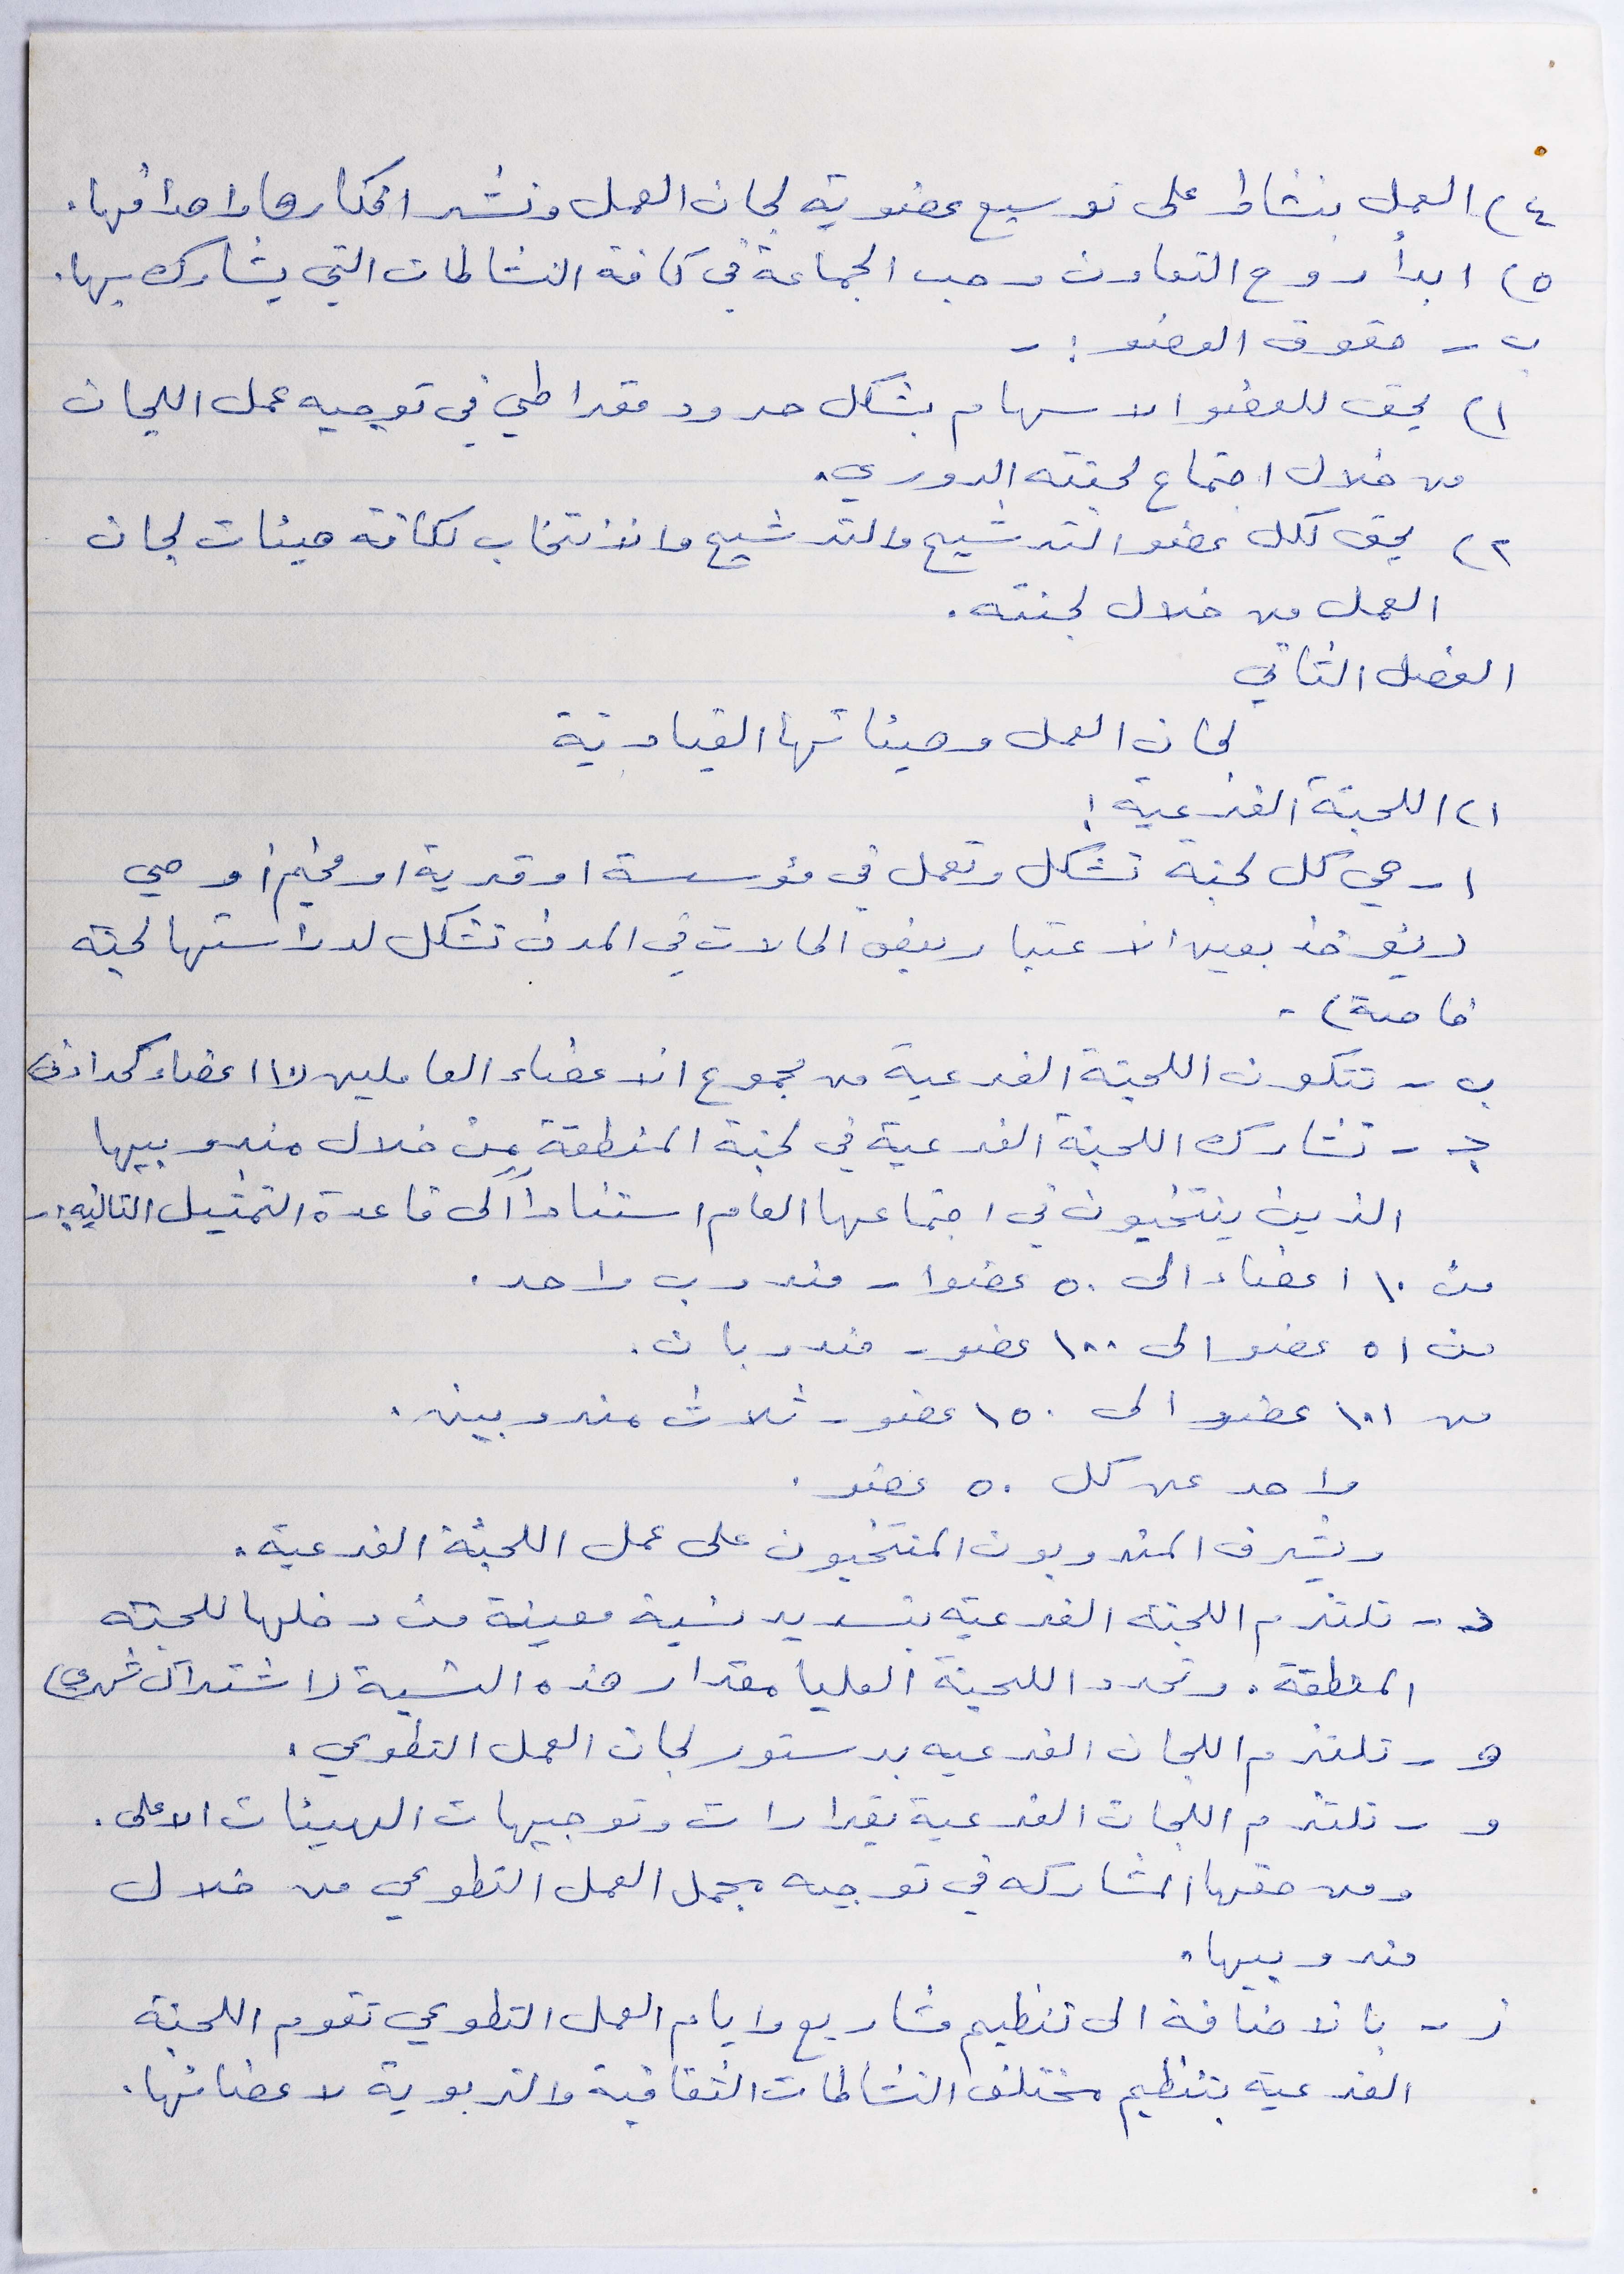 ٤) العمل بنشاط على توسيع عضوية لجان العمل ونشر افكارها واهدافها.
٥) ابدأ روح التعاون وحب الجماعة في كافة النشاطات التي يشارك بها.
ب - حقوق العضو :-
١) يحق للعضو الاسهام بشكل حر ودمقراطي في توجيه عمل اللجان
من خلال اجتماع لجنته الدوري.
٢) يحق لكل عضو الترشيح والترشيح والانتخاب لكافة هيئات لجان
العمل من خلال لجنته.
الفصل الثاني
لجان العمل وهيئاتها القيادية
١) اللجنة الفرعية :
١- هي كل لجنة تشكل وتعمل في مؤسسة او قرية او مخيم أو حي
(يؤخذ بعين الاعتبار بعض الحالات في المدن تشكل لدراستها لجنة
خاصة) -
ب - تتكون اللجنة الفرعية من مجموع الاعضاء العاملين (١٠ اعضاء كحد ادنى)
ج - تشارك اللجنة الفرعية في لجنة المنطقة من خلال مندوبيها
الذين ينتخبون في اجتماعها العام استناداً الى قاعدة التمثيل التاليه :-
من ١٠ اعضاء الى ٥٠ عضوا - مندوب واحد.
من ٥١ عضو الى ١٠٠ عضو - مندوبان.
من ١٠١ عضو الى ١٥٠ عضو - ثلاث مندوبين.
واحد عن كل ٥٠ عضو.
ويشرف المندوبون المنتخبون على عمل اللجنة الفرعية.
د - تلتزم اللجنة الفرعية بتسديد نسبة معينة من دخلها للجنة
المنطقة. وتحدد اللجنة العليا مقدار هذه النسبة (اشتراك شهري)
ه - تلتزم اللجان الفرعيه بدستور لجان العمل التطوعي.
و - تلتزم اللجان الفرعية بقرارات وتوجيهات الهيئات الاعلى.
ومن حقها المشاركه في توجيه مجمل العمل التطوعي من خلال
مندوبيها.
ز - بالاضافة الى تنظيم مشاريع وايام العمل التطوعي تقوم اللجنة
الفرعية بتنظيم مختلف النشاطات الثقافية والتربوية لاعضائها.